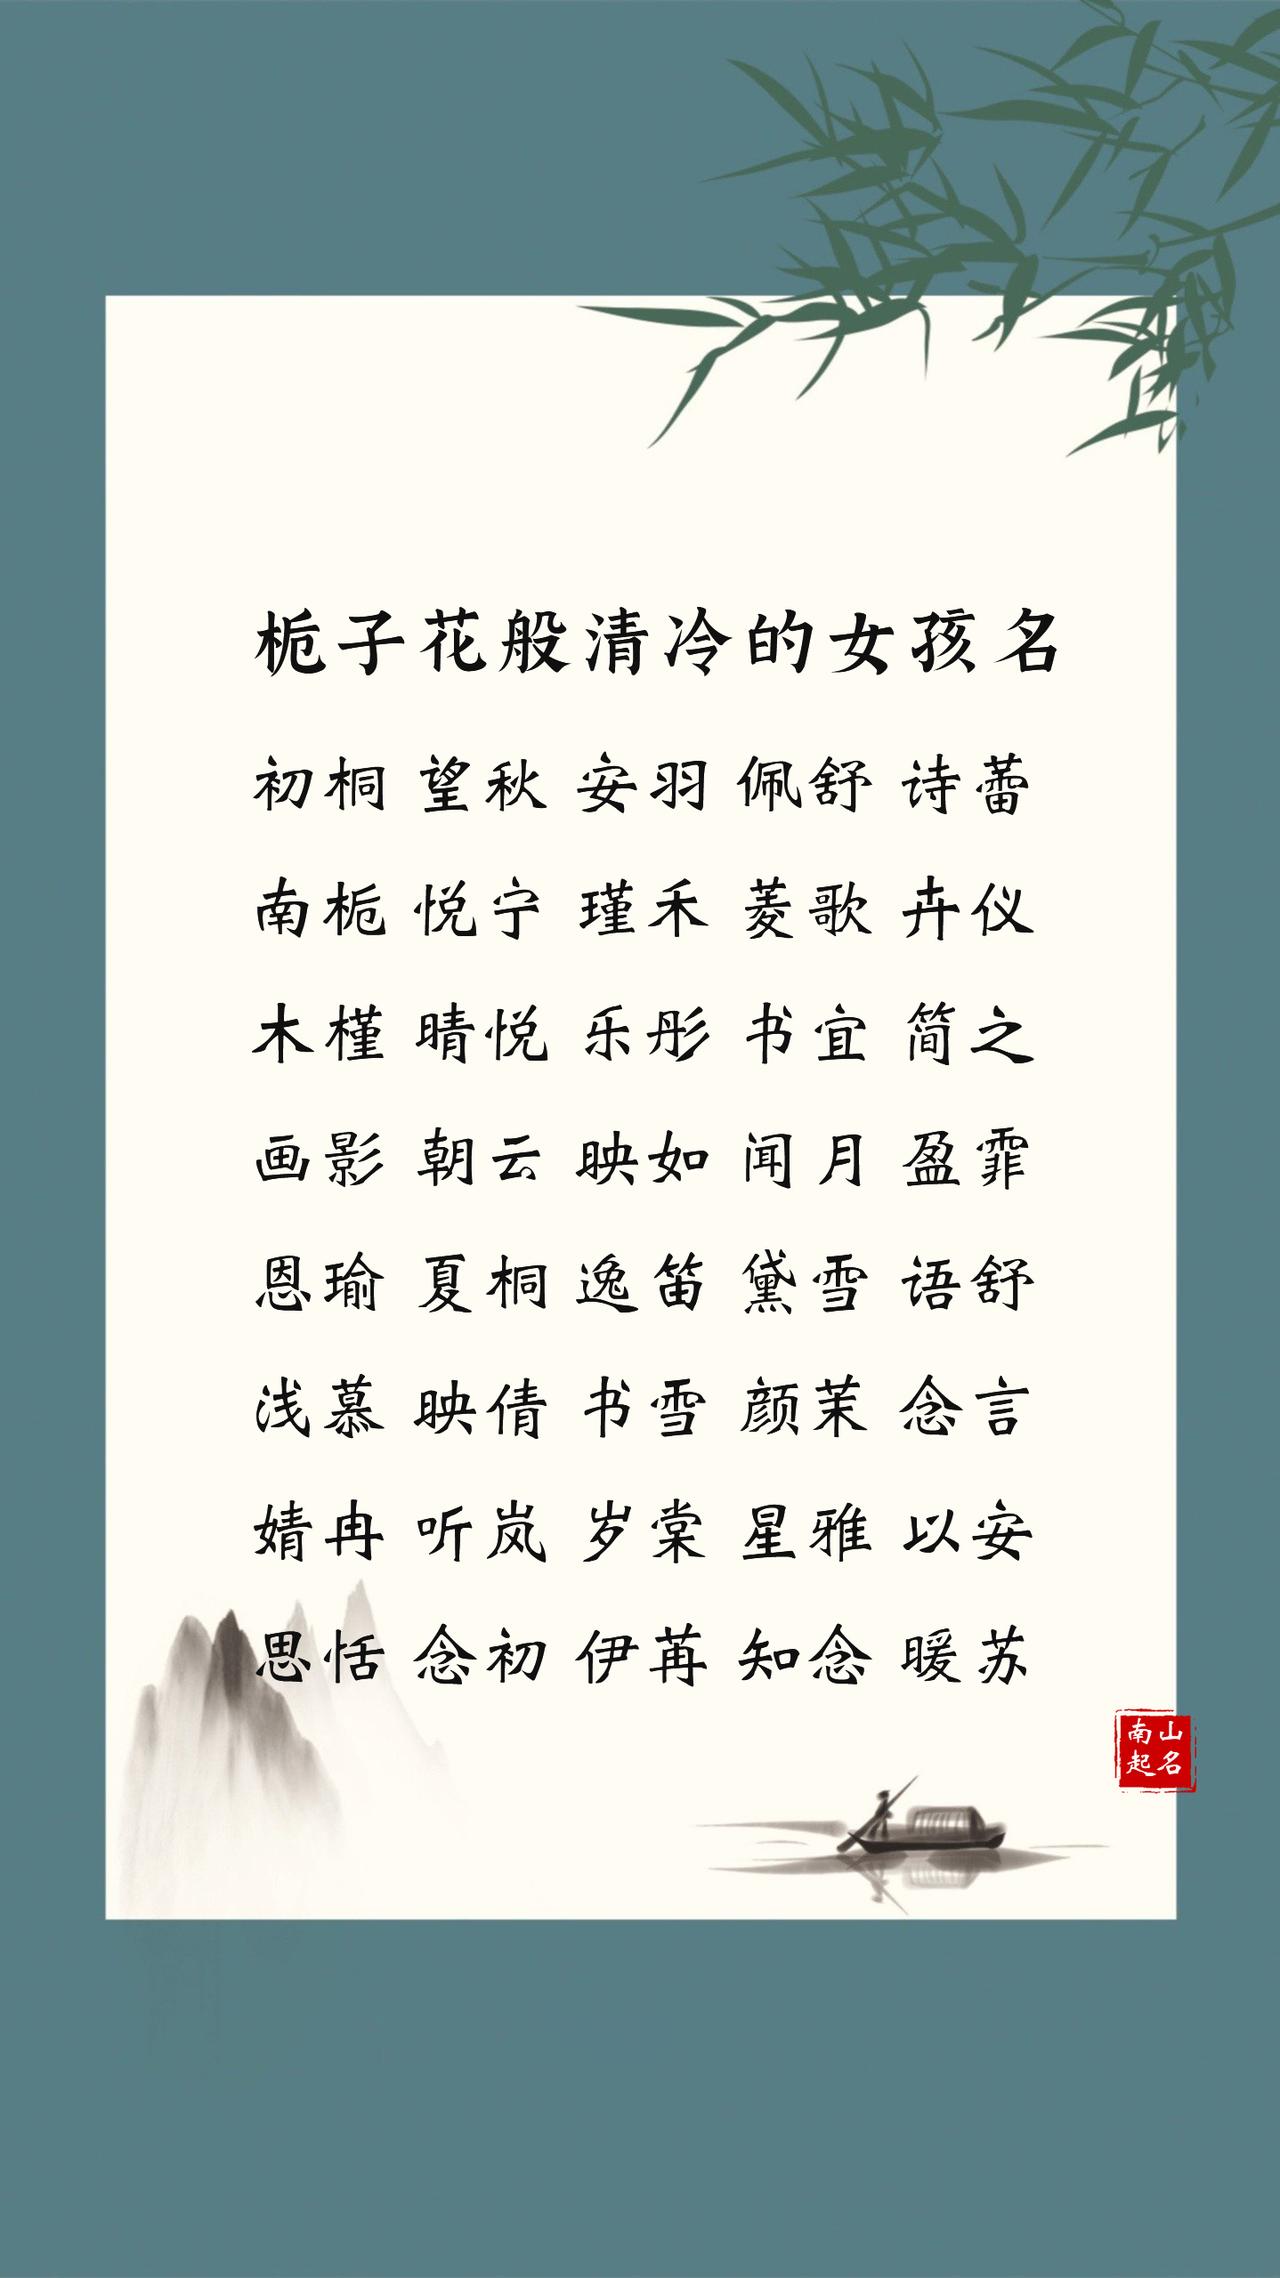 栀子花般清冷的女孩名
初桐 望秋 安羽 佩舒 诗蕾
南栀 悦宁 瑾禾 菱歌 卉仪
木槿 晴悦 乐彤 书宜 简之
画影 朝云 映如 闻月 盈霏
恩瑜 夏桐 逸笛 黛雪 语舒
浅慕 映倩 书雪 颜茉 念言
婧冉 听岚 岁棠 星雅 以安
思恬 念初 伊苒 知念 暖苏
南山
起名